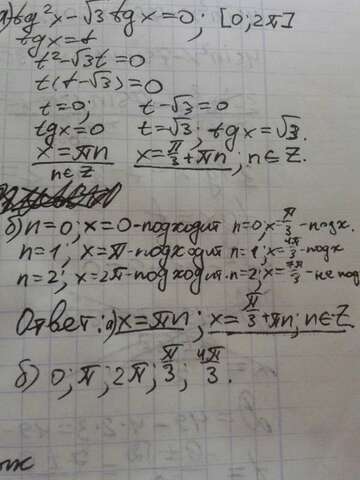 а) tg²x - √3 tgx = 0; [0; 2π]
tgx = t
t² - √3t = 0
t(t - √3) = 0
t = 0; t - √3 = 0
tgx = 0 t = √3; tgx = √3.
x = πn x = π/3 + πn; n ∈ Z.
n ∈ Z
б) n = 0; x = 0 - подходит n = 0; x = π/3 - подх.
n = 1; x = π - подходит n = 1; x = 4π/3 - подх
n = 2; x = 2π - подходит. n = 2; x = 7π/3 - не под
Ответ: а) x = πn; x = π/3 + πn; n ∈ Z
б) 0; π; 2π; π/3; 4π/3.